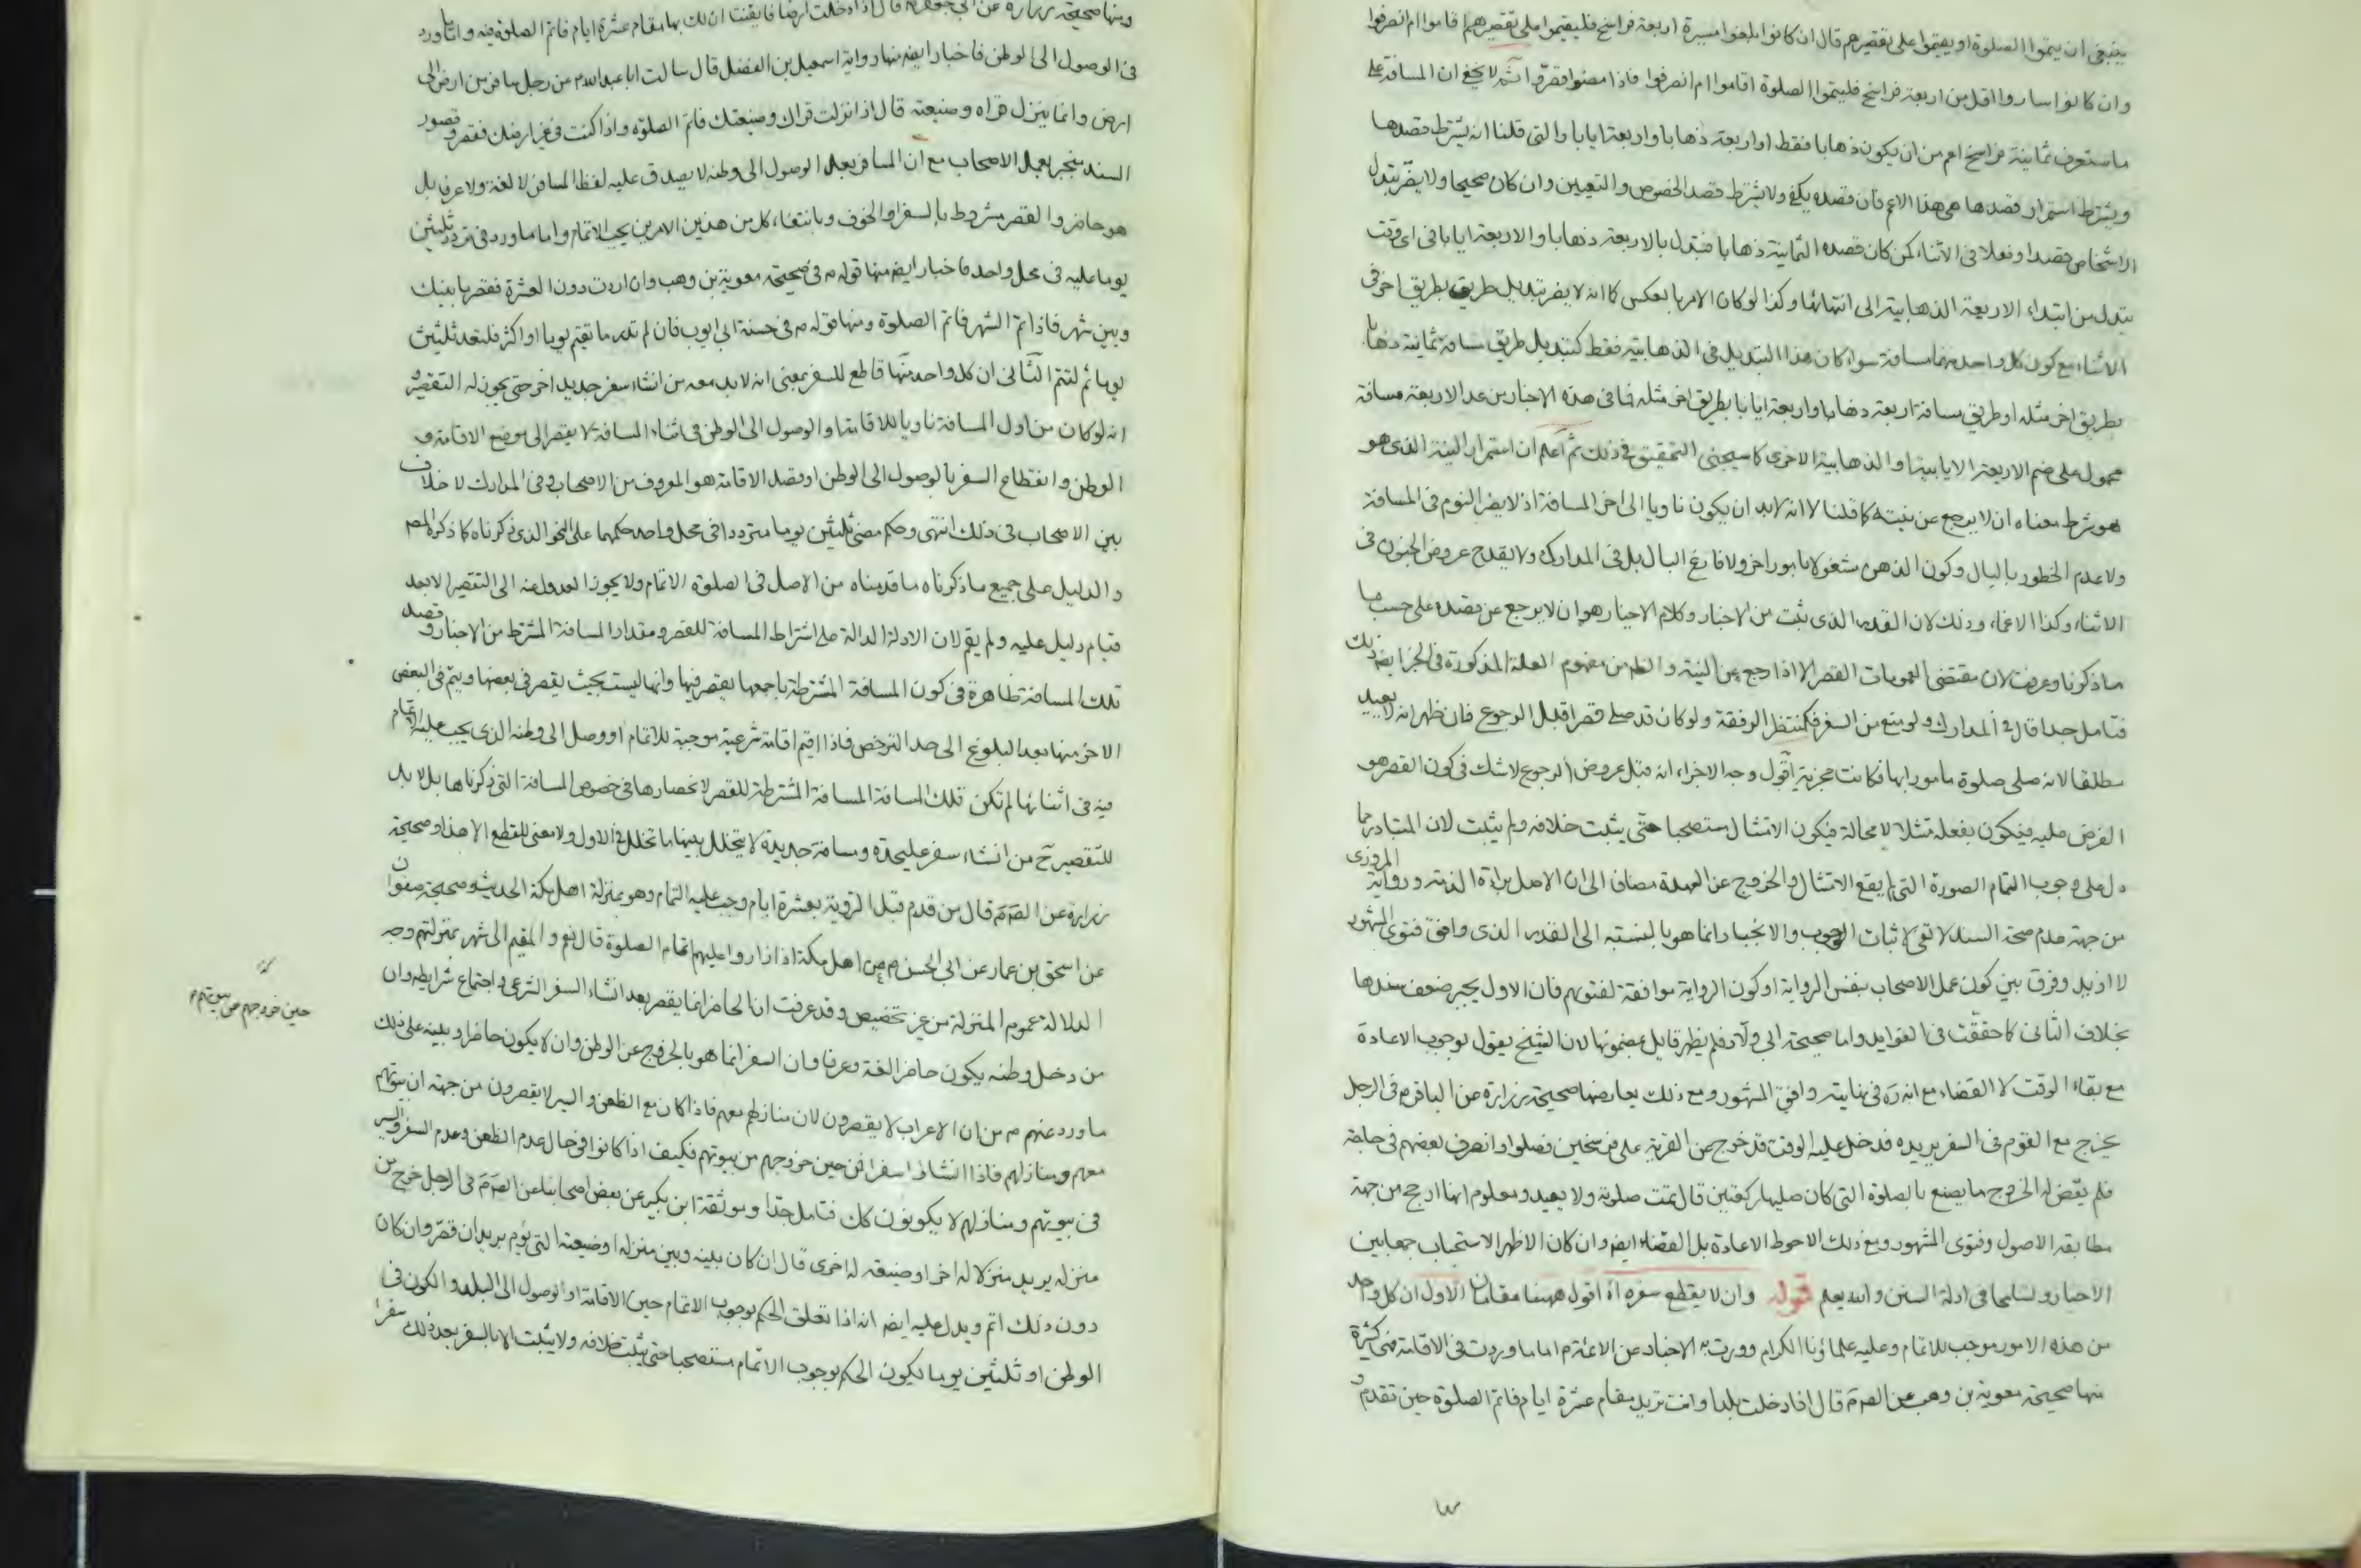 ينبغى ان يتموا الصلوة او يقيموا على تقصيرهم قال ان كانوا بلغوا مسيرة اربعة فراسخ فليقيموا على تقصيرهم اقاموا ام انصرفوا
وان كانوا ساروا اقل من اربعة فراسخ فليتموا الصلوة اقاموا ام انصرفوا فاذا مضوا فقصروا ثم لا يخفى ان المسافة على
ما ستعرف ثمانية فراسخ اعم من ان يكون ذهابا فقط او اربعة ذهابا واربعة ايابا والتى قلنا انه يشترط قصدها
ويشترط استمرار قصدها هى هذا الاعم فان قصده يكفى ولا يشترط قصد الخصوص والتعيين وان كان صحيحا ولا يضر تبدل
الاشخاص قصدا وفعلا فى الاثناء كمن كان قصده الثمانية ذهابا فتبدل بالاربعة ذهابا والاربعة ايابا فى اى وقت
يتبدل من ابتداء الاربعة الذهابية الى انتهائها وكذا لو كان الامر بالعكس كما انه لا يضر تبديل طريق بطريق اخر فى
الاثناء مع كون كل واحد منهما مسافة سواء كان هذا التبديل فى الذهابية فقط كتبديل طريق مسافة ثمانية ذهابا
بطريق اخر مثله او طريق مسافة اربعة ذهابا واربعة ايابا بطريق اخر مثله فما فى هذه الاخبار من عد الاربعة مسافة
محمول على ضم الاربعة الايابية او الذهابية الاخرى كما سيجئ التحقيق فى ذلك ثم اعلم ان استمرار النية الذى هو
هو شرط معناه ان لا يرجع عن نيته كما قلنا لا انه لا بد ان يكون ناويا الى اخر المسافة اذ لا يضر النوم فى المسافة
ولا عدم الخطور بالبال وكون الذهن مشغولا بامور اخر ولا فارغ البال بل فى المدارك ولا يقدح عروض الجنون فى
الاثناء وكذا الاغماء وذلك لان القدر الذى يثبت من الاخبار وكلام الاخيار هو ان لا يرجع عن قصده على حسب ما
ما ذكرنا وعرفت لان مقتضى العمومات القصر الا اذا رجع عن النية والظ من مفهوم العلة المذكورة فى الخبر ايضا ذلك
فتامل جدا قال فى المدارك ولو منع من السفر فكمنتظر الرفقة ولو كان قد صلى قصرا قبل الرجوع فان ظهر انه لا يعيد
مطلقا لانه صلى صلوة مامورا بها فكانت مجزية اقول وجه الاجزاء انه قبل عروض الرجوع لا شك فى كون القصر هو
الفرض عليه فيكون بفعله ممتثلا لا محالة فيكون الامتثال مستصحبا حتى يثبت خلافه ولم يثبت لان المتبادر مما
دل على وجوب التمام الصورة التى لم يقع الامتثال والخروج عن العهدة مضافا الى ان الاصل براءة الذمة ورواية المروزى
من جهة عدم صحة السند لا تفى لاثبات الوجوب والانجبار انما هو بالنسبة الى القدر الذى وافق فتوى المشهور
لا ازيد وفرق بين كون عمل الاصحاب بنفس الرواية او كون الرواية موافقة لفتويهم فان الاول يجبر ضعف سندها
بخلاف الثانى كما حققت فى الفوايد واما صحيحة ابى ولاد فلم يظهر قايل بمضمونها لان الشيخ يقول بوجوب الاعادة
مع بقاء الوقت لا القضاء مع انه ره فى نهايته وافق المشهور ومع ذلك يعارضها صحيحة زرارة عن الباقر م فى الرجل
يخرج مع القوم فى السفر يريده فدخل عليه الوقت قد خرج من القرية على فرسخين فصلوا وانصرف بعضهم فى حاجة
فلم يقض له الخروج ما يصنع بالصلوة التى كان صليها ركعتين قال تمت صلوته ولا يعيد ومعلوم انها ارجح من جهة
مطابقة الاصول وفتوى المشهور ومع ذلك الاحوط الاعادة بل القضاء ايضا وان كان الاظهر الاستحباب جمعا بين
الاخبار وتسامحا فى ادلة السنن والله يعلم قوله وان لا يقطع سفره اه اقول ههنا مقامان الاول ان كل واحد
من هذه الامور موجب للاتمام وعليه علماؤنا الكرام ووردت به الاخبار عن الائمة م اما ما وردت فى الاقامة فهى كثيرة
منها صحيحة معوية بن وهب عن الصم قال اذا دخلت بلدا وانت تريد مقام عشرة ايام فاتم الصلوة حين تقدم و
ومنها صحيحة زرارة عن ابى جعفر م قال اذا دخلت ارضا فايقنت ان لك بها مقام عشرة ايام فاتم الصلوة فيه واما ما ورد
فى الوصول الى الوطن فاخبار ايضا منها رواية اسمعيل بن الفضل قال سالت ابا عبد الله م عن رجل سافر من ارض الى
ارض وانما ينزل قراه وضيعته قال اذا نزلت قراك وضيعتك فاتم الصلوة واذا كنت فى غير ارضك فقصر وقصور
السند منجبر بعمل الاصحاب مع ان المسافر بعد الوصول الى وطنه لا يصدق عليه لفظ المسافر لا لغة ولا عرفا بل
هو حاضر والقصر مشروط بالسفر او الخوف وبانتفاء كل من هذين الامرين يجب الاتمام واما ما ورد فى تردد ثلثين
يوما عليه فى محل واحد فاخبار ايضا منها قوله م فى صحيحة معوية بن وهب وان اردت دون العشرة فقصر ما بينك
وبين شهر فاذا تم الشهر فاتم الصلوة ومنها قوله م فى حسنة ابى ايوب فان لم تدر ما تقيم يوما او اكثر فلتعد ثلثين
يوما ثم لتتم الثانى ان كل واحد منها قاطع للسفر بمعنى انه لا بد معه من انشاء سفر جديد اخر حتى يجوز له التقصير و
انه لو كان من اول المسافة ناويا للاقامة او الوصول الى الوطن فى اثناء المسافة لا يقصر الى موضع الاقامة و
الوطن وانقطاع السفر بالوصول الى الوطن او قصد الاقامة هو المعروف من الاصحاب وفى المدارك لا خلاف
بين الاصحاب فى ذلك انتهى وحكم مضى ثلثين يوما مترددا فى محل واحد حكمهما على النحو الذى ذكرناه كما ذكره المصم
والدليل على جميع ما ذكرناه ما قدمناه من الاصل فى الصلوة الاتمام ولا يجوز العدول عنه الى التقصير الا بعد
قيام دليل عليه ولم يقم لان الادلة الدالة على اشتراط المسافة للقصر ومقدار المسافة المشترط من الاخبار وقصد
تلك المسافة ظاهرة فى كون المسافة المشترطة باجمعها يقصر فيها وانها ليست بحيث يقصر فى بعضها ويتم فى البعض
الاخر منها بعد البلوغ الى حد الترخص فاذا اقيم اقامة شرعية موجبة للاتمام او وصل الى وطنه الذى يجب عليه الاتمام
فيه فى اثنائها لم تكن تلك المسافة المسافة المشترطة للقصر لانحصارها فى خصوص المسافة التى ذكرناها بل لا بد
للتقصير ح من انشاء سفر عليحدة ومسافة جديدة لا يتخلل بينها ما تخلل فى الاول ولا معنى للقطع الا هذا وصحيحة
زرارة عن الصم قال من قدم قبل التروية بعشرة ايام وجب عليه التمام وهو بمنزلة اهل مكة الحديث وصحيحة صفوان
عن اسحق بن عمار عن ابى الحسن م عن اهل مكة اذا زاروا عليهم اتمام الصلوة قال نعم والمقيم الى شهر بمنزلتهم وجه
الدلالة عموم المنزلة من غير تخصيص وقد عرفت ان الحاضر انما يقصر بعد انشاء السفر الشرعى واجتماع شرايطه وان
من دخل وطنه يكون حاضرا لغة وعرفا وان السفر انما هو بالخروج عن الوطن وان لا يكون حاضرا وينبه على ذلك
ما ورد عنهم م من ان الاعراب لا يقصرون لان منازلهم معهم فاذا كان مع الظعن والسير لا يقصرون من جهة ان بيوتهم
معهم ومنازلهم فاذا انشاؤا سفرا فمن حين خروجهم من بيوتهم فكيف اذا كانوا فى حال عدم الظعن وعدم السفر والسير
فى بيوتهم ومنازلهم لا يكونون كك فتامل جدا وموثقة ابن بكير عن بعض اصحابنا عن الصم فى الرجل خرج من
منزله يريد منزلا له اخر او ضيعة له اخرى قال ان كان بينه وبين منزله او ضيعته التى يؤم بريدان قصر وان كان
دون ذلك اتم ويدل عليه ايضا انه اذا تعلق الحكم بوجوب الاتمام حين الاقامة او الوصول الى البلد والكون فى
الوطن او ثلثين يوما يكون الحكم بوجوب الاتمام مستصحبا حتى يثبت خلافه ولا يثبت الا بالسفر بعد ذلك سفرا
حين خروجهم من بيوتهم م